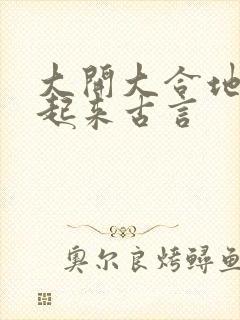 大開大合地
起来古言
奥尔良烤鲟鱼